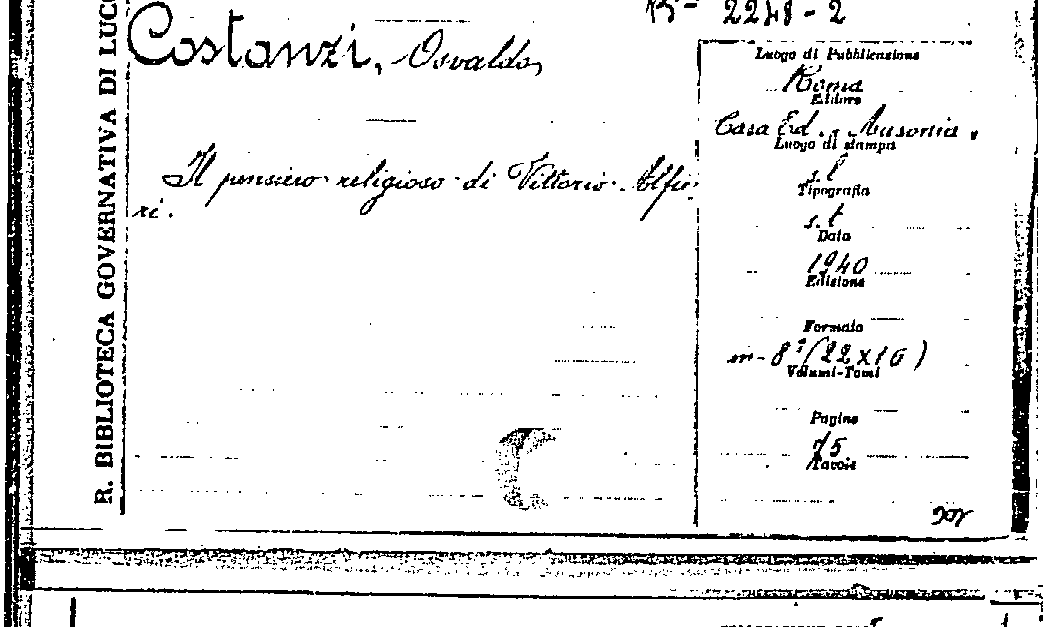 R. BIBLIOTECA GOVERNATIVA DI LUCC
Costanzi, Osvaldo
Il pensiero religioso di Vittorio Alfie-
ri.
B- 2248-2
Luogo di Pubblicazione
Roma
Editore
Casa Ed. Ausonia.
Luogo di stampa
s.l
Tipografia
s.t
Data
1940
Edizione
Formato
in-8° (22x16)
Volumi-Tomi
Pagine
75
Tavole